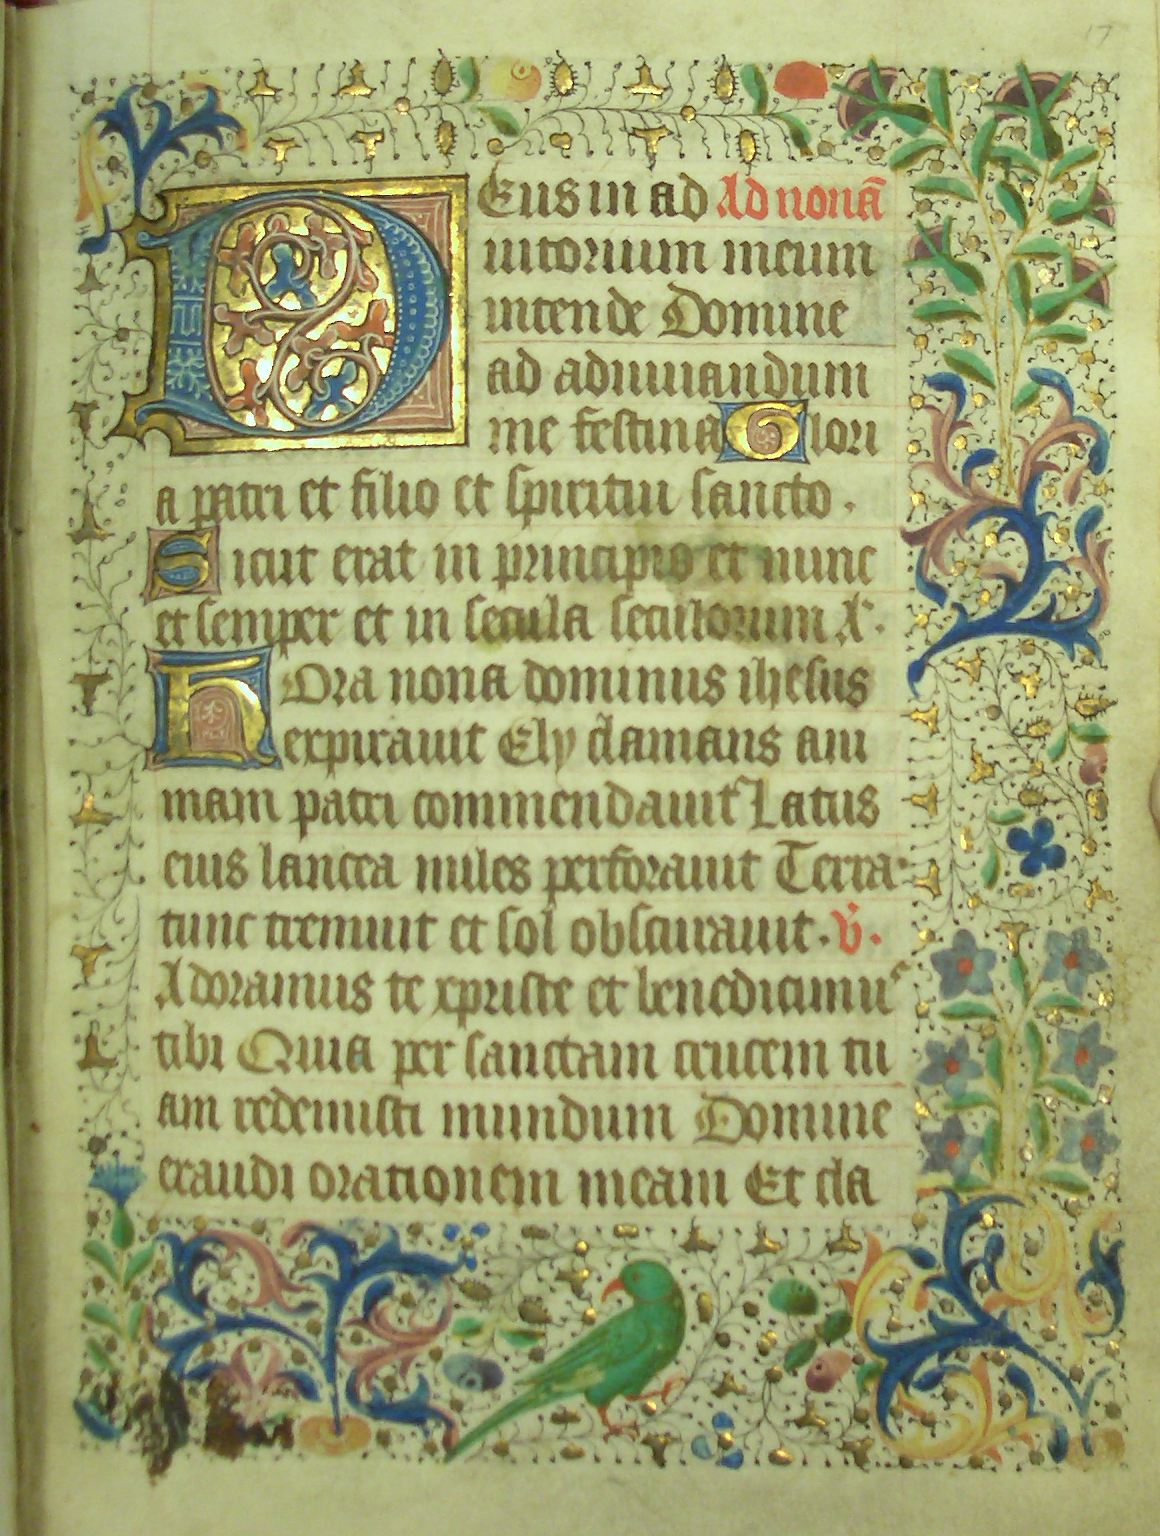 17
Deus in ad Ad nonā
iutorium meum
intende Domine
ad adiuuandum
me festina Glori
a patri et filio et spiritui sancto .
Sicut erat in principio et nunc
et semper et in secula seculorum A.
Hora nona dominus ihesus
expirauit Ely clamans ani
mam patri commendauit Latus
eius lancea miles perforauit Terra
tunc tremuit et sol obscurauit . v̄ .
Adoramus te xpriste et benedicimus
tibi Quia per sanctam crucem tu
am redemisti mundum Domine
exaudi orationem meam Et cla